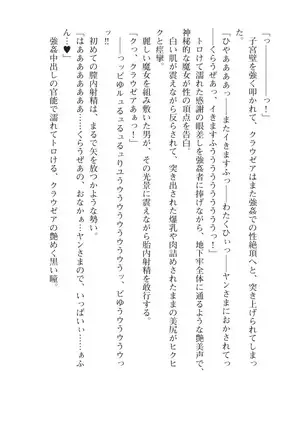 『っ――っ！』
子宮壁を強く叩かれて、クラウゼアはまた強姦での性絶頂へと、突き上げられてしまっ
た。
『ひやぁぁぁぁっ――またイきますふっ――わたくひぃっ――ヤンさまにおかされてっ
――くらうぜあっ、イきますふうううううううううっ！』
トロけて濡れた感謝の眼差しを強姦者に捧げながら、地下牢全体に通るような艶美声で、
神秘的な魔女が性の頂点を告白。
白い肌が震えながら反らされて、突き出された爆乳や肉詰めされたままの美尻がヒクヒ
クと痙攣。
麗しい魔女を組み敷いた男が、その光景に震えながら胎内射精を敢行する。
『クっ、クラウゼアあぁっ！』
――っッビゅルュるュるュるュりユうウうウうウうウうウっ、ビゆうウうウうウっ
初めての膣内射精は、まるで矢を放つかような勢い。
『はあああああああああんっ――くらうぜあの、おなかぁ…ヤンさまので、いっぱいぃ……ぁふ
ぅん…♥』
強姦中出しの官能で濡れてトロける、クラウゼアの艶めく黒い瞳。